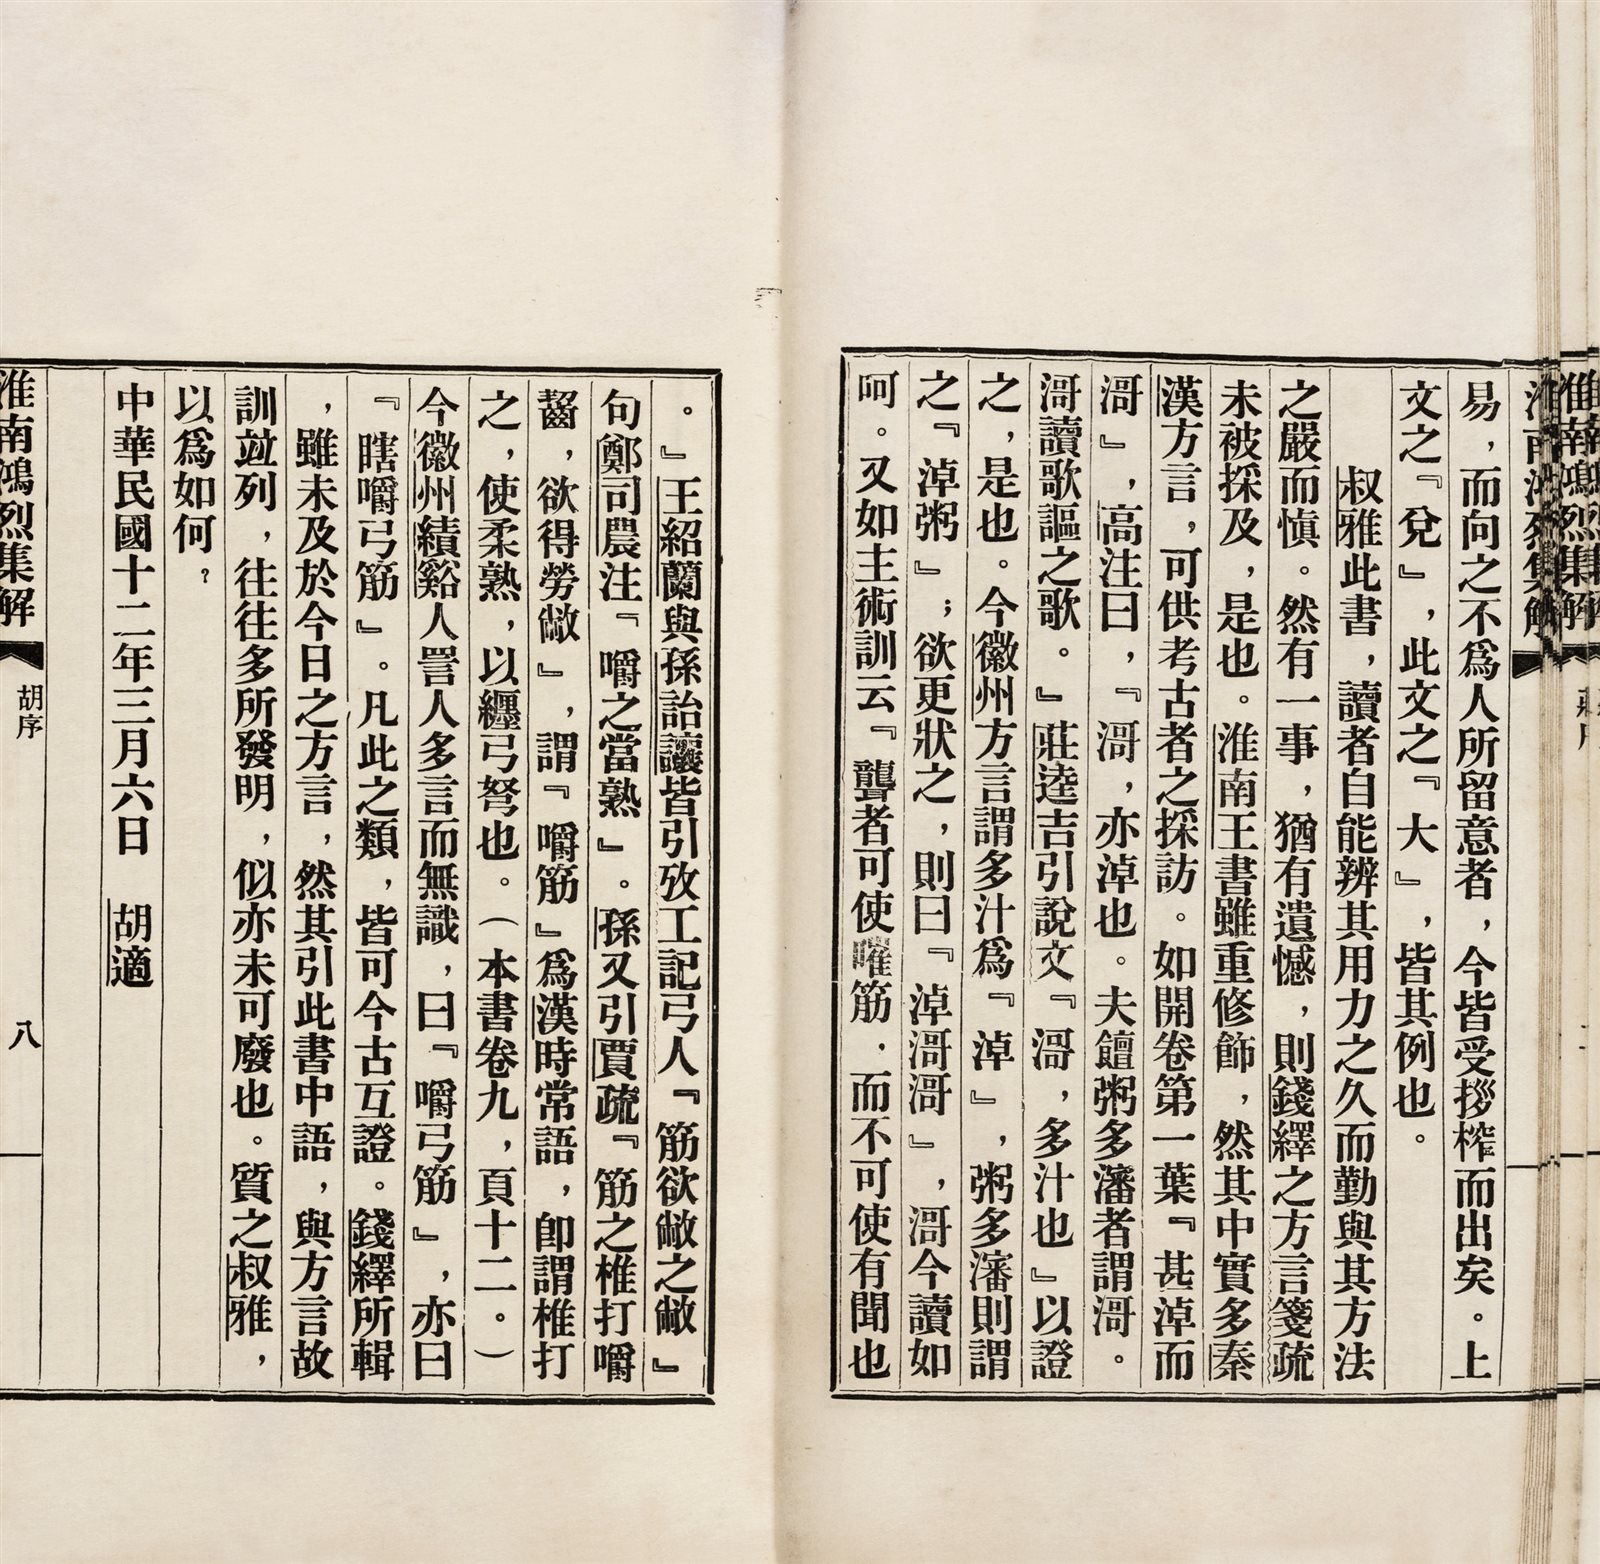 易，而向之不爲人所留意者，今皆受拶榨而出矣。上
文之『兌』，此文之『大』，皆其例也。
叔雅此書，讀者自能辨其用力之久而勤與其方法
之嚴而慎。然有一事，猶有遺憾，則錢繹之方言箋疏
未被採及，是也。淮南王書雖重修飾，然其中實多秦
漢方言，可供考古者之採訪。如開卷第一葉『甚淖而
滒』，高注曰，『滒，亦淖也。夫饘粥多瀋者謂滒。
滒讀歌謳之歌。』莊逵吉引說文『滒，多汁也』以證
之，是也。今徽州方言謂多汁爲『淖』，粥多瀋則謂
之『淖粥』；欲更狀之，則曰『淖滒滒』，滒今讀如
阿。又如主術訓云『聾者可使嗺筋，而不可使有聞也
。』王紹蘭與孫詒讓皆引攷工記弓人『筋欲敝之敝』
句鄭司農注『嚼之當熟』。孫又引賈疏『筋之椎打嚼
齧，欲得勞敝』，謂『嚼筋』爲漢時常語，卽謂椎打
之，使柔熟，以纏弓弩也。（本書卷九，頁十二。）
今徽州績谿人詈人多言而無識，曰『嚼弓筋』，亦曰
『瞎嚼弓筋』。凡此之類，皆可今古互證。錢繹所輯
，雖未及於今日之方言，然其引此書中語，與方言故
訓竝列，往往多所發明，似亦未可廢也。質之叔雅，
以爲如何？
中華民國十二年三月六日　胡適
淮南鴻烈集解
胡序
八